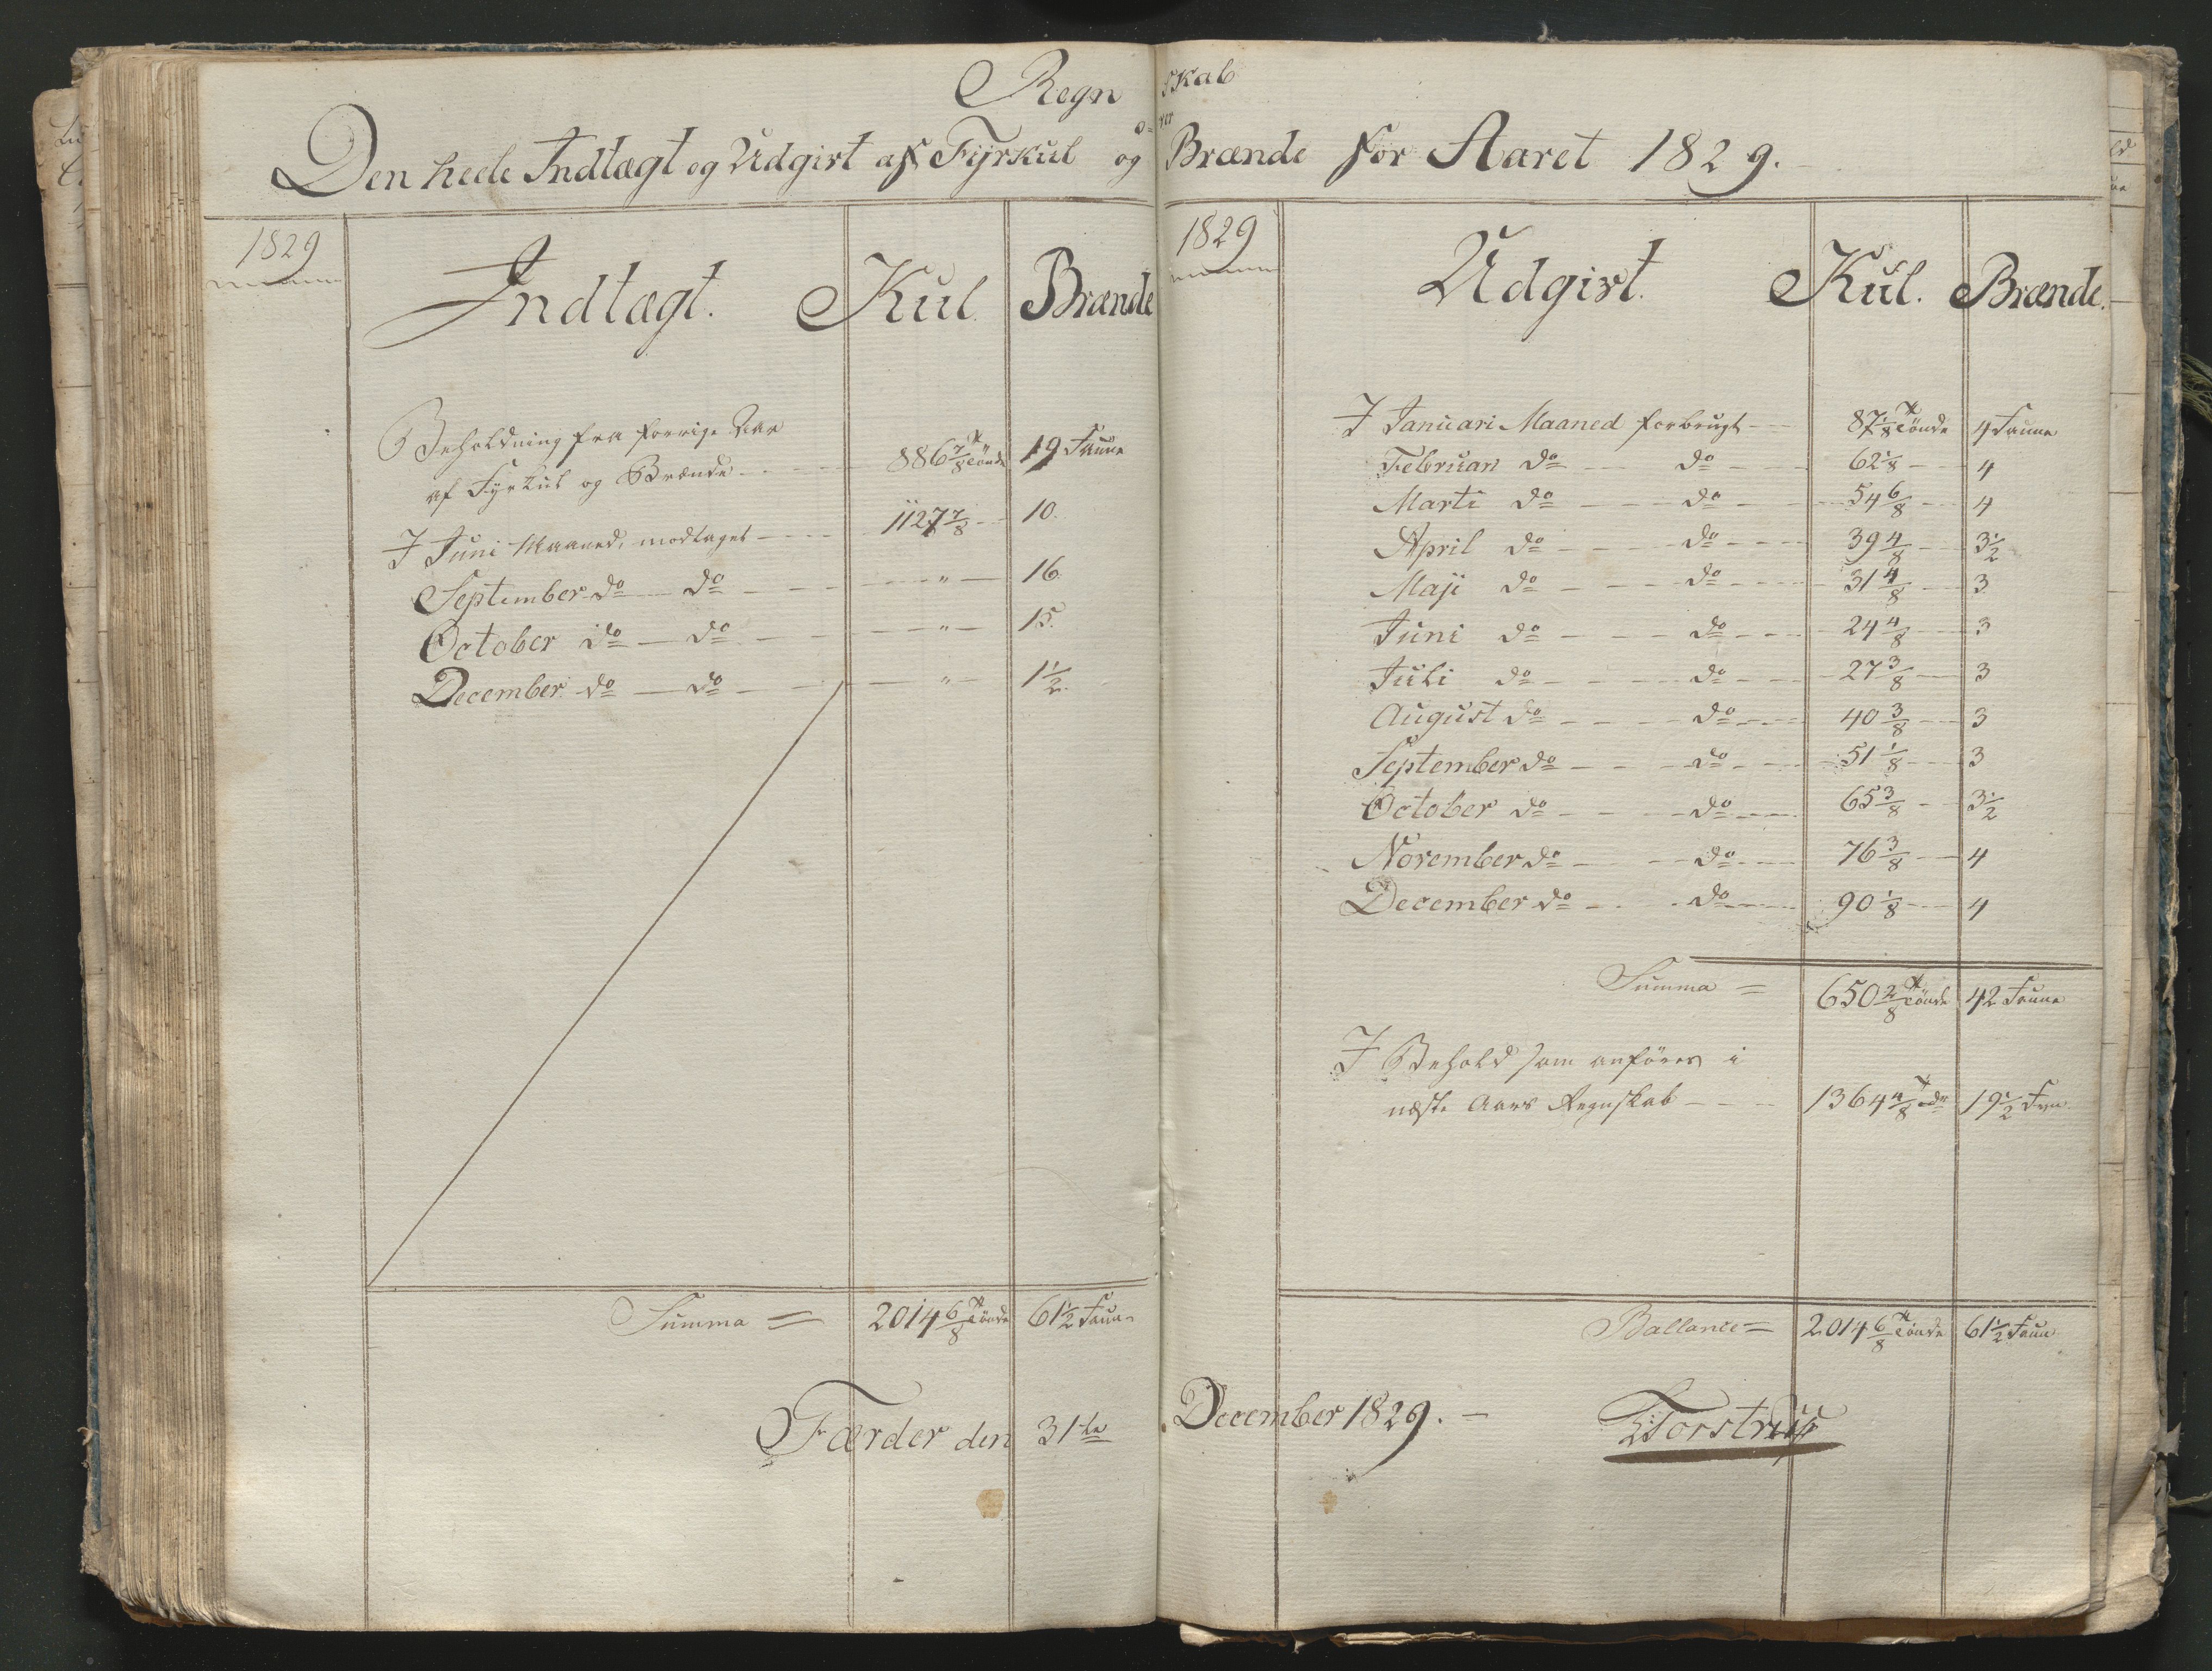 Regnskab
over
Den heele Indtægt og Udgivt af Fyrkul og Brænde for Aaret 1829.
1829
Indtægt. Kul Brænde
Beholdning fra forrige Aar
af Fyrkul og Brænde 886 7/8 Tönde 19 Faune
I Juni Maaned, modtaget 1127 7/8 10.
September do do " 16.
October do do " 15.
December do do " 1 1/2.
Summa = 2014 6/8 Tönde 61 1/2 Faun
1829
Udgivt. Kul. Brænde.
I Januari Maaned forbrugt 87 1/8 Tönde 4 Faune
Februari do do 62 1/8 4
Marti do do 54 6/8 4
April do do 39 4/8 3 1/2
Maji do do 31 4/8 3
Juni do do 24 4/8 3
Juli do do 27 3/8 3
August do do 40 3/8 3
September do do 51 1/8 3
October do do 65 3/8 3 1/2
November do do 76 3/8 4
December do do 90 1/8 4
Summa = 650 2/8 Tönde 42 Faune
I Behold som anföres i
næste Aars Regnskab 1364 4/8 19 1/2
Ballance = 2014 6/8 Tönde 61 1/2 Faun
Færder den 31te December 1829. Torstrup